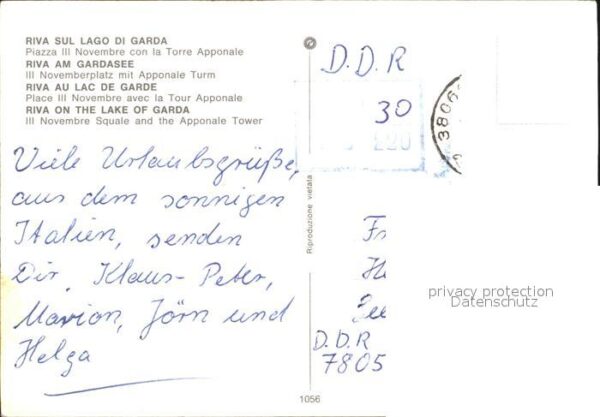 RIVA SUL LAGO DI GARDA
Piazza III Novembre con la Torre Apponale
RIVA AM GARDASEE
III Novemberplatz mit Apponale Turm
RIVA AU LAC DE GARDE
Place III Novembre avec la Tour Apponale
RIVA ON THE LAKE OF GARDA
III Novembre Squale and the Apponale Tower
Viele Urlaubsgrüße,
aus dem sonnigen
Italien, senden
Dir, Klaus-Peter,
Marion, Jörn und
Helga
Riproduzione vietata
1056
D.D.R
30
220
38066
Fr
He
privacy protection
Datenschutz
D.D.R
7805